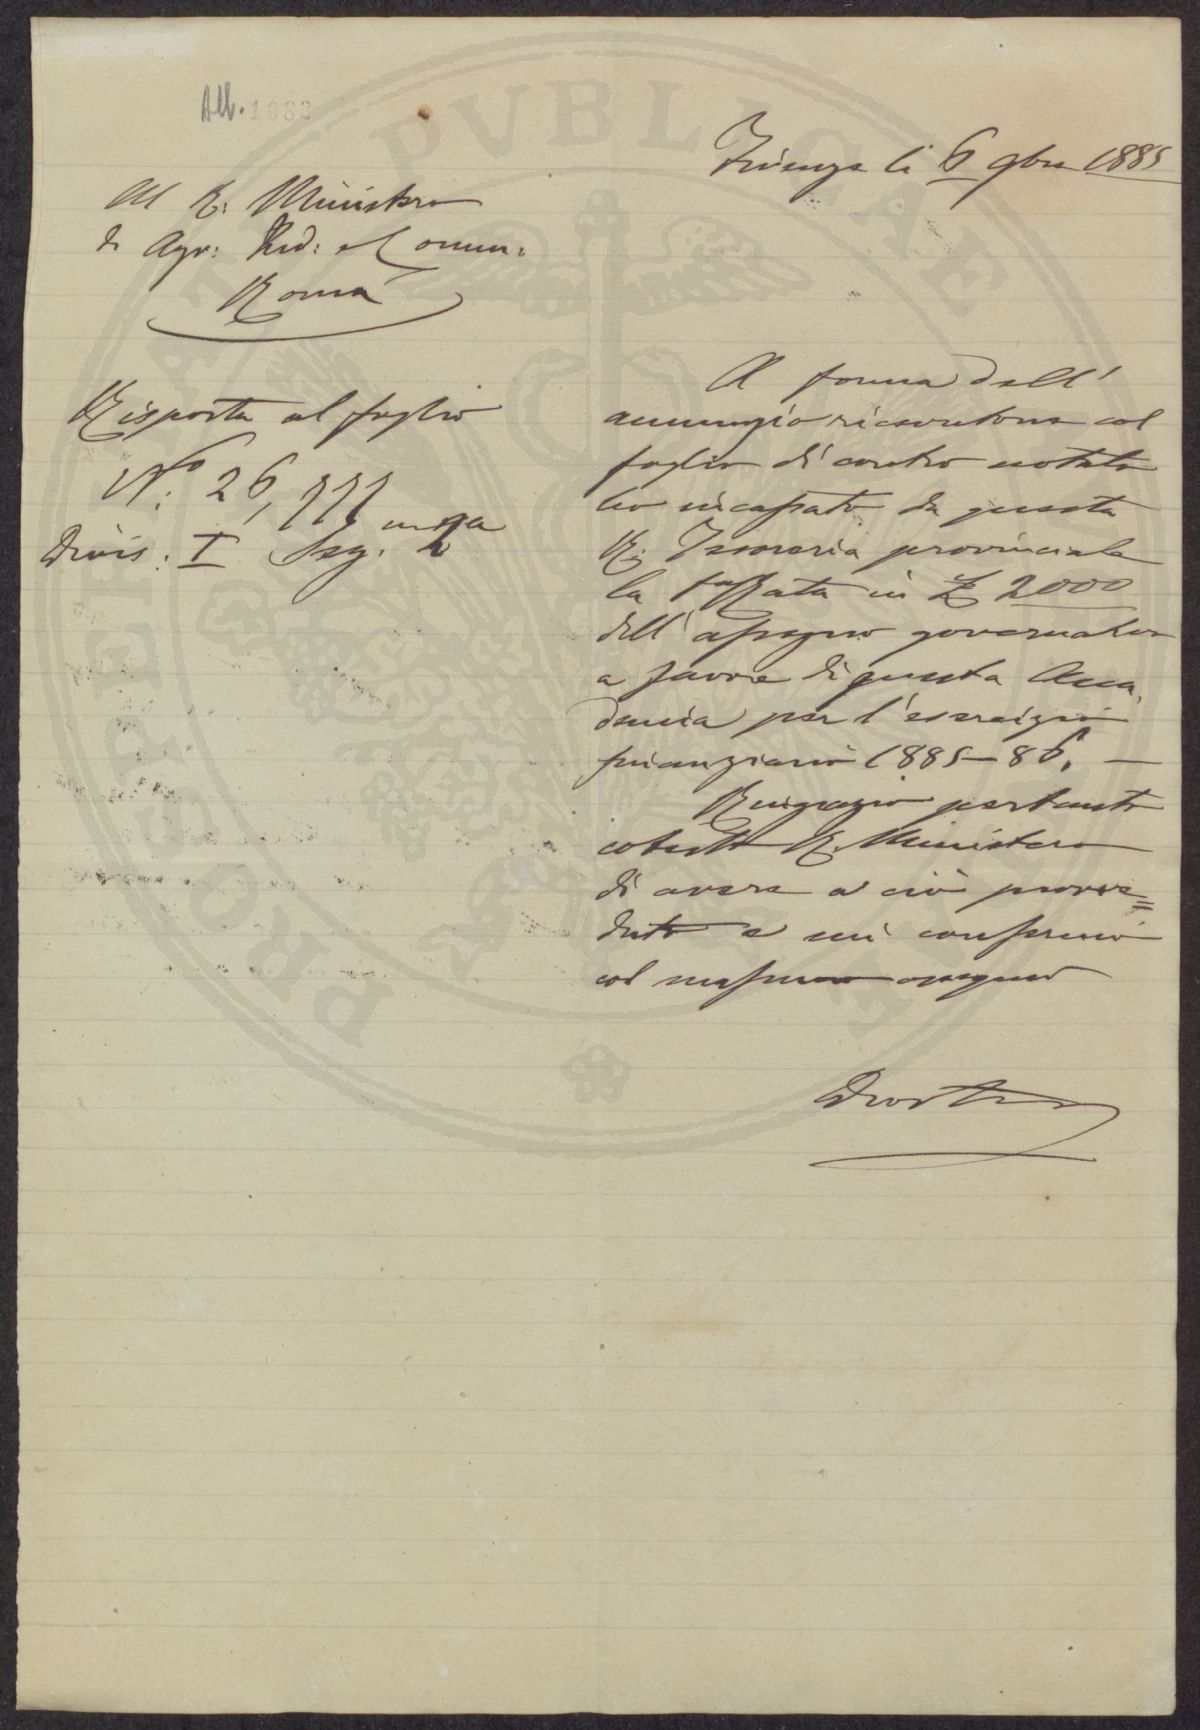 All. 1082
Firenze li 6 9bre 1885
Al R. Ministero
di Agr: Ind: e Comm:
Roma
Risposta al foglio
N.o 26,777
Divis: I Seg. 2a
A forma dell'
annunzio ricevutone col
foglio di contro notato
ho incassato da questa
R. Tesoreria provinciale
la rata in £ 2000
dell'assegno governativo
a favore di questa Acca,
demia per l'esercizio
finanziario 1885-86. —
Ringrazio pertanto
cotesto R. Ministero
di avere a ciò provve=
duto e mi confermo
col massimo ossequio
PVBLICAE